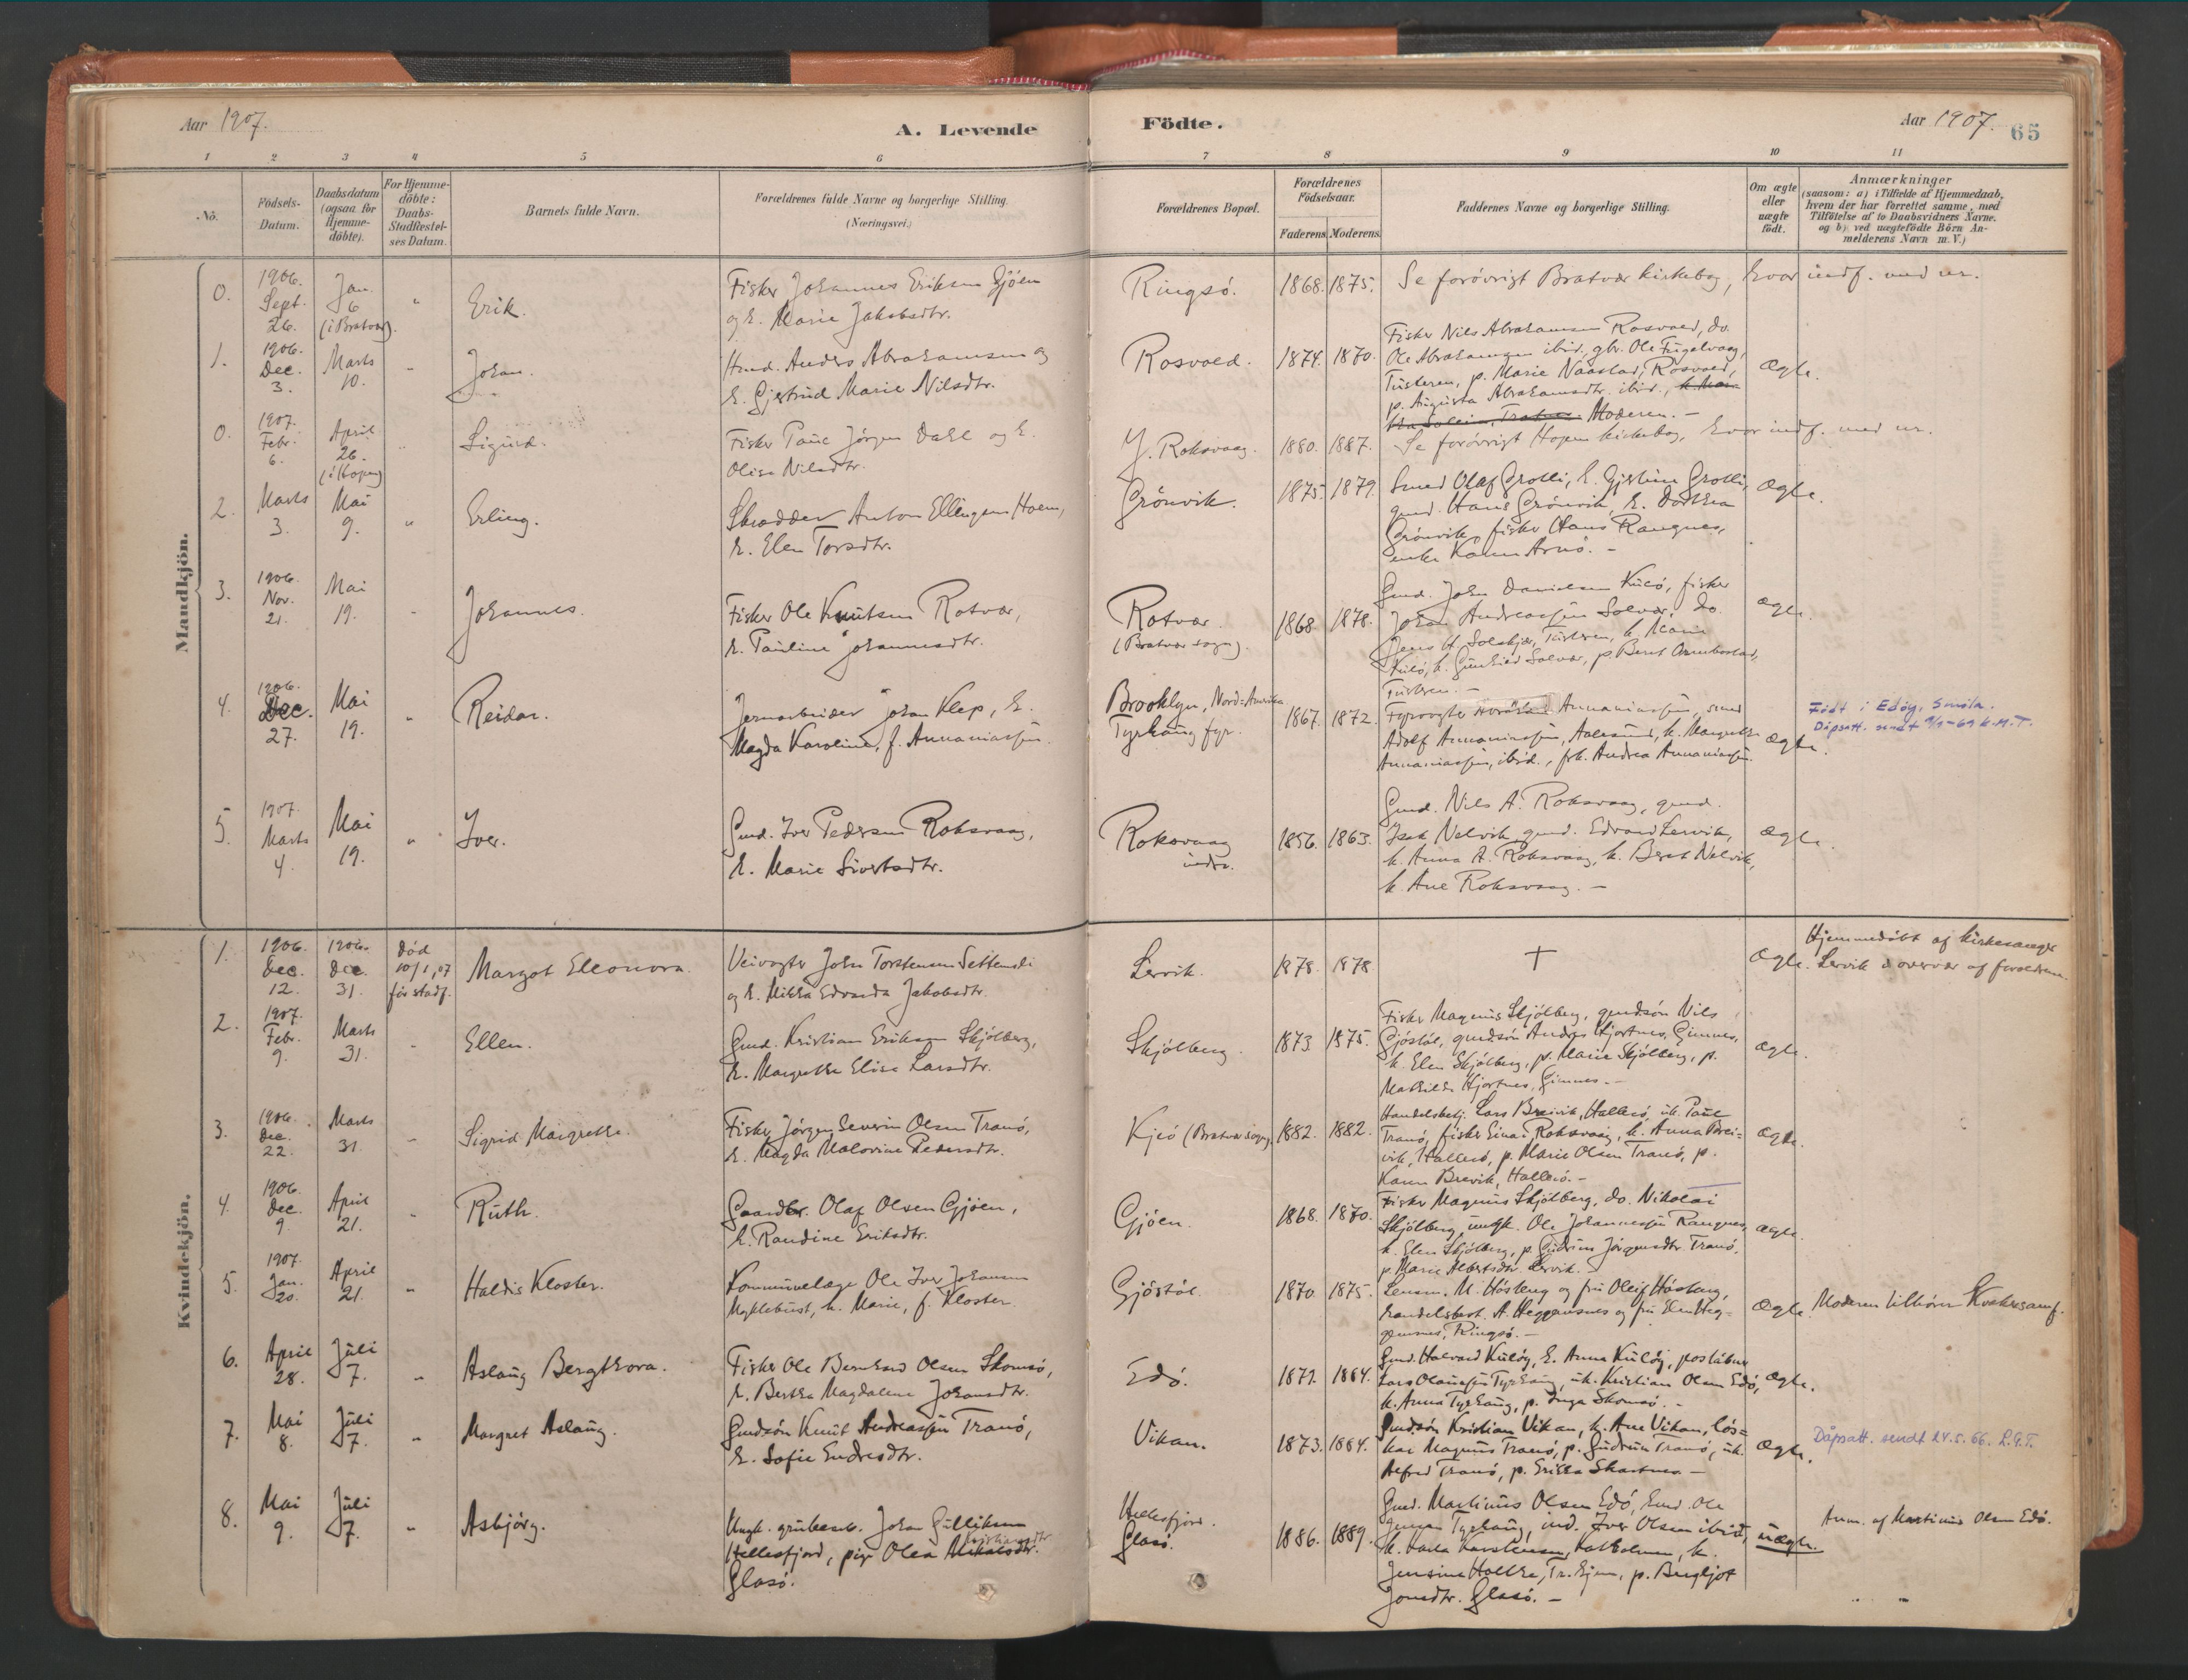 Aar 1907.
A. Levende
Födte.
Aar 1907. 65
1 2 3 4 5 6 7 8 9 10 11
No.
Födsels-
Datum.
Daabsdatum
(ogsaa for
Hjemme-
döbte).
For Hjemme-
döbte:
Daabs-
Stadfæstel-
ses Datum.
Barnets fulde Navn.
Forældrenes fulde Navne og borgerlige Stilling.
(Næringsvei.)
Forældrenes Bopæl.
Forældrenes
Födselsaar.
Faderens. Moderens.
Faddernes Navne og borgerlige Stilling.
Om ægte
eller
uægte
födt.
Anmærkninger
(saasom: a) i Tilfælde af Hjemmedaab,
hvem der har forrettet samme, med
Tilföielse af to Daabsvidners Navne,
og b) ved uægtefödte Börn An-
melderens Navn m. V.)
Mandkjön.
0.
1906.
Sept.
26.
Jan.
6
(i Bratvær).
"
Erik.
Fisker Johannes Eriksen Gjöen
og h. Marie Jakobsdtr.
Ringsö.
1868. 1875.
Se forövrigt Bratvær kirkebog, hvor indf. med nr.
1.
1906.
Dec.
3.
Marts
10.
"
Johan.
Anders Abrahamsen og
h. Gjertrud Marie Nilsdtr.
Rosvold.
1874. 1870.
Fisker Nils Abrahamsen Rosvold, do.
Ole Abrahamsen ibid, gbr. Ole Fugelvaag,
Tusteren, p. Marie Naastad, Rosvold,
p. Augusta Abrahamsdtr. ibid.,
Moderen. -
Ægte.
0.
1907.
Febr.
6.
April
26.
(i Hopen)
"
Sigurd.
Fisker Paul Jörgen Dahl og h.
Olise Nilsdtr.
Y. Roksvaag.
1880. 1887.
Se forövrigt Hopen kirkebog, hvor indf. med nr.
2.
Marts
3.
Mai
9.
"
Erling.
Skrædder Anton Ellingsen Hoem,
h. Elen Torsdtr.
Grönvik.
1875. 1879.
Smed Olaf Grolli, h. Gjertine Grolli,
gmd. Hans Grönvik, h. Dorthea
Grönvik, fisker Hans Rangnes,
enke Karen Arnö. -
Ægte.
3.
1906.
Nov.
21.
Mai
19.
"
Johannes.
Fisker Ole Knutsen Rotvær,
h. Pauline Johannesdtr.
Rotvær.
(Bratvær sogn).
1868 1878.
Gmd. John Danielsen Kulö, fisker
Johan Andreassen Solvær, do.
Jens H. Solskjær, Tusteren, k. Marie
Kulö, k. Gunhild Solvær, p. Berit
Tusteren. -
Ægte.
4.
1906.
Dec.
27.
Mai
19.
"
Reidar.
Jernarbeider Johan Klep, h.
Magda Karoline, f. Annaniassen.
Brooklyn, Nord-Amerika
Tyrhaug fyr.
1867. 1872.
Fyrvogter Annaniassen, smed
Adolf Annaniassen, Aalesund, k. Margrethe
Annaniassen, ibid., frk. Andrea Annaniassen.
Ægte.
Født i Edøy, Smøla.
Dåpsatt. sendt 9/1-69 K.M.T.
5.
1907.
Marts
4.
Mai
19.
"
Iver.
Gmd. Iver Pedersen Roksvaag,
h. Marie Sivertsdtr.
Roksvaag
indre.
1856. 1863.
Gmd. Nils A. Roksvaag, gmd.
Isak Nelvik, gmd. Edvard Lervik,
k. Anna A. Roksvaag, k. Beret Nelvik,
k. Ane Roksvaag. -
Ægte.
Kvindekjön.
1.
1906.
Dec.
12.
1906.
Dec.
31.
Död
10/1,07
för stadf.
Margot Eleonora.
Veivogter John Torstensen Settemsli
og h. Mikka Edvarda Jakobsdtr.
Lervik.
1878. 1878
†
Ægte.
Hjemmedöbt af kirkesanger
Lervik i overvær af forældrene.
2.
1907.
Febr.
9.
Marts
31.
"
Ellen.
Gmd. Kristian Eriksen Skjölberg,
h. Margrethe Elise Larsdtr.
Skjölberg.
1873. 1875.
Fisker Magnus Skjölberg, gmdsön Nils
Gjöstöl, gmdsön Anders Hjortnes, Gimnes,
k. Elen Skjölberg, p. Marie Skjölberg, p.
Mathilde Hjortnes, Gimnes. -
Ægte.
3.
1906.
Dec.
22.
Marts
31.
"
Sigrid Margrethe.
Fisker Jörgen Severin Olsen Tranö,
h. Magda Malovine Pedersdtr.
Kjeö (Bratvær sogn)
1882. 1882.
Handelsbetj. Lars Breivik, Hallesö, uk. Paul
Tranö, fisker Einar Roksvaag, k. Anna Brei-
vik, Hallesö, p. Marie Olsen Tranö, p.
Karen Brevik, Hallesö. -
Ægte.
4.
1906.
Dec.
9.
April
21.
"
Ruth.
Gaardbr. Olaf Olsen Gjöen,
h. Randine Eriksdtr.
Gjöen.
1868. 1870.
Fisker Magnus Skjölberg, do. Nikolai
Skjölberg, ungk. Ole Johannessen Rangnes,
k. Elen Skjölberg, p. Gudrun Jörgensdtr. Tranö,
p. Marie Albertsdtr. Lervik. -
Ægte.
5.
1907.
Jan.
20.
April
21.
"
Haldis Kloster.
Kommunelæge Ole Iver Johansen
Myklebust, h. Marie, f. Kloster.
Gjöstöl.
1870. 1875.
Lensm. M. Hösteng og fru Oleif Hösteng,
handelsbest. A. Heggemsnes og fru Elen Heg-
gemsnes, Ringsö. -
Ægte.
Moderen tilhörer Kvækersamf.
6.
April
28.
Juli
7.
"
Aslaug Bergthora.
Fisker Ole Bernhard Olsen Skomsö,
h. Bertha Magdalene Johansdtr.
Edö.
1871. 1864.
Gmd. Halvard Kulöy, h. Anna Kulöy, postaabner
Lars Olaussen Tyrhaug, uk. Kristian Olsen Edö,
k. Anna Tyrhaug, p. Inga Skomsö. -
Ægte.
7.
Mai
8.
Juli
7.
"
Margret Aslaug.
Gmdsön Knut Andreassen Tranö,
h. Sofie Endresdtr.
Vikan.
1873. 1884.
Gmdsön Kristian Vikan, k. Ane Vikan, lös-
kar Magnus Tranö, p. Gudrun Tranö, uk.
Alfred Tranö, p. Erikka Skartnes -
Ægte.
Dåpsatt. sendt 24.5.66. L.G.T.
8.
Mai
9.
Juli
7.
"
Asbjörg.
Ungk. grubearb. Johan Gulliksen
Hellesfjord, pige Olea Kristiansdtr
Glasö.
Hellesfjord.
Glasö.
1886. 1889.
Gmd. Martinus Olsen Edö, Gmd. Ole
Jensen Tyrhaug, ind. Iver Olsen ibid,
k. Karla Karstensen, k.
Jensine Holthe, p. Bergljot
Jonsdtr. Glasö. -
uægte.
Anm. af Martinus Olsen Edö.